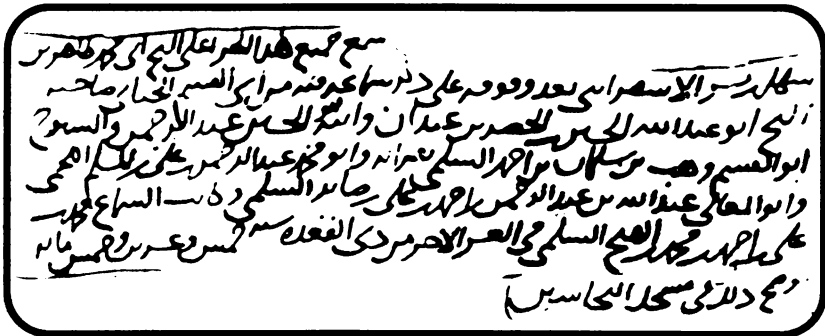 سمع جميع هذا الجزء على الشيخ ابي محمد طاهر بن
سهل بن بشر الاسفرايني بعد وقوفه على ذكر سماعه فيه من ابي القسم الحنائي صاحبه
الشيخ ابو عبد الله الحسين بن الخضر بن عبدان وابنه الحسين عبد الرحمن والشيوخ
ابو القسم وهب بن سلمان بن احمد السلمي وابو محمد عبد الرحمن بن علي بن المسلم اللخمي
وابو المعالي عبد الله بن عبد الرحمن بن احمد بن علي بن صابر السلمي وكاتب السماع محمد بن
علي بن احمد بن محمد بن الفتح السلمي في العشر الاخر من ذي القعدة سنة خمس وعشرين وخمس مائة
وصح ذلك في مسجد النحاسين